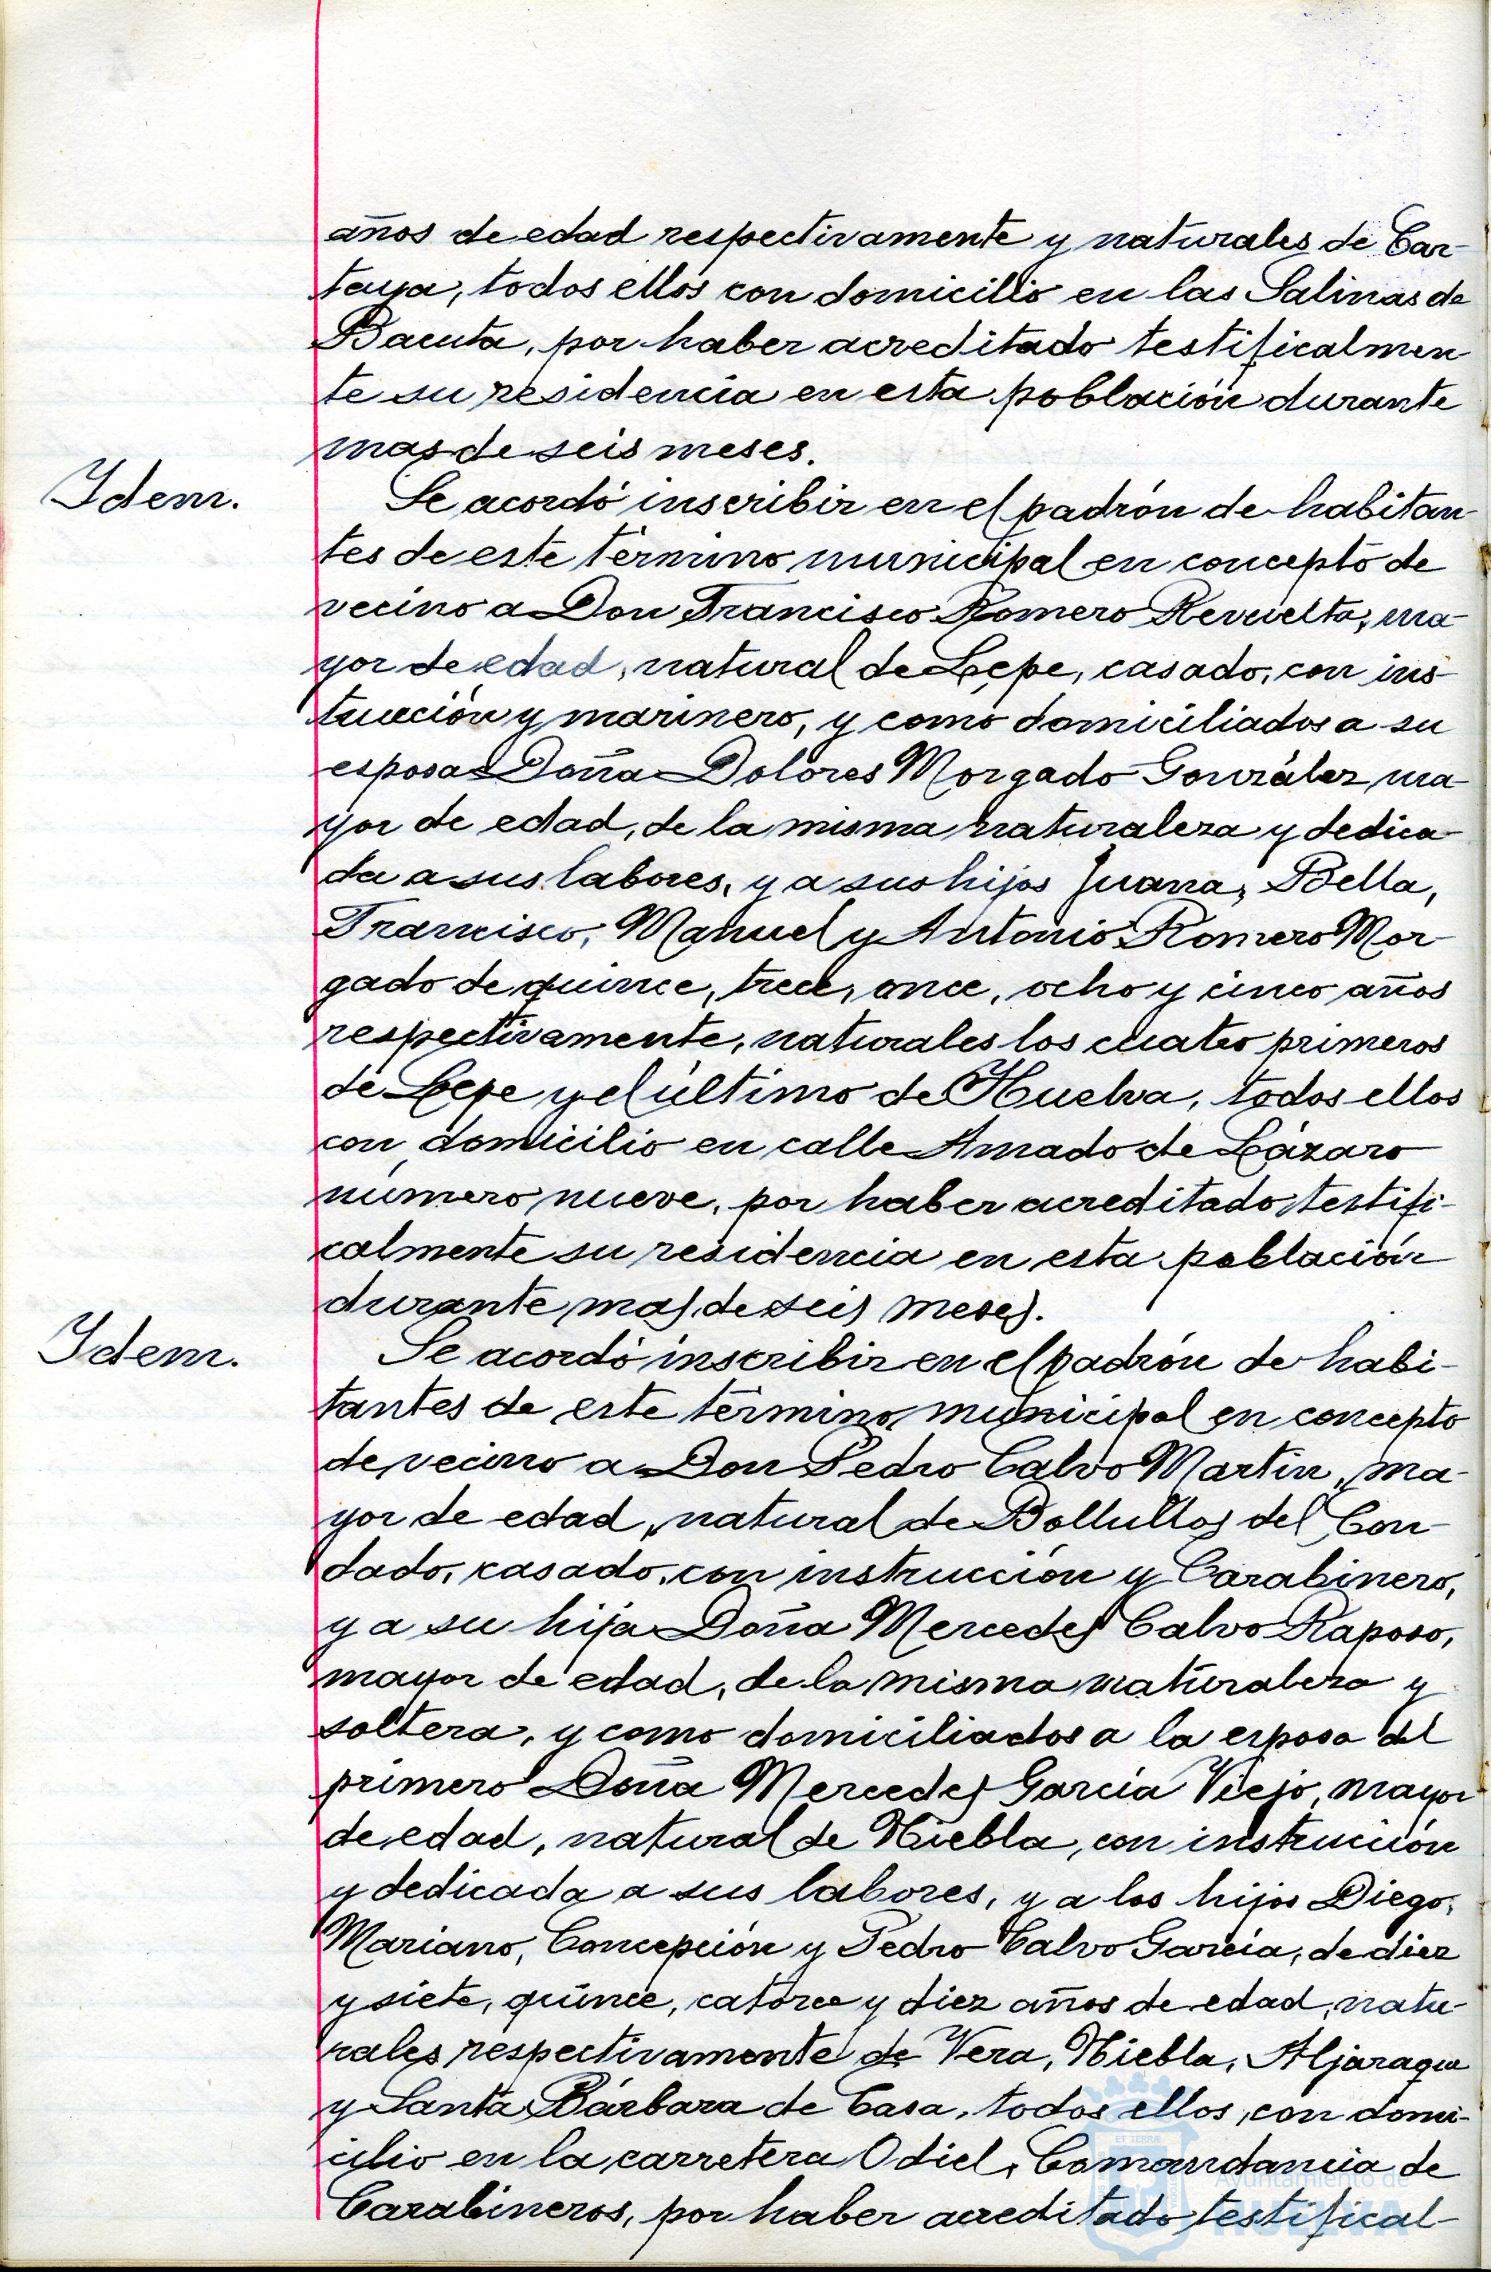 años de edad respectivamente y naturales de Car-
taya, todos ellos con domicilio en las Salinas de
Bacuta, por haber acreditado testificalmen
te su residencia en esta población durante
mas de seis meses.
Idem.
Se acordó inscribir en el padrón de habitan
tes de este término municipal en concepto de
vecino a Don Francisco Romero Revuelta, ma-
yor de edad, natural de Lepe, casado, con ins-
trucción y marinero, y como domiciliados a su
esposa Doña Dolores Morgado González, ma-
yor de edad, de la misma naturaleza y dedica-
da a sus labores, y a sus hijos Juana, Bella,
Francisco, Manuel y Antonio Romero Mor-
gado de quince, trece, once, ocho y cinco años
respectivamente, naturales los cuatro primeros
de Lepe y el último de Huelva, todos ellos
con domicilio en calle Amado de Lázaro
número nueve, por haber acreditado testifi-
calmente su residencia en esta población
durante mas de seis meses.
Idem.
Se acordó inscribir en el padrón de habi-
tantes de este término municipal en concepto
de vecino a Don Pedro Calvo Martin, ma-
yor de edad, natural de Bollullos del Con-
dado, casado, con instrucción y Carabinero,
y a su hija Doña Mercedes Calvo Raposo,
mayor de edad, de la misma naturaleza y
soltera, y como domiciliados a la esposa del
primero Doña Mercedes García Viejo, mayor
de edad, natural de Niebla, con instrucción
y dedicada a sus labores, y a los hijos Diego,
Mariano, Concepción y Pedro Calvo García, de diez
y siete, quince, catorce y diez años de edad, natu-
rales respectivamente de Vera, Niebla, Aljaraque
y Santa Bárbara de Casa, todos ellos, con domi-
cilio en la carretera Odiel, Comandancia de
Carabineros, por haber acreditado testifical-
ET TERRÆ
Ayuntamiento de
HUELVA